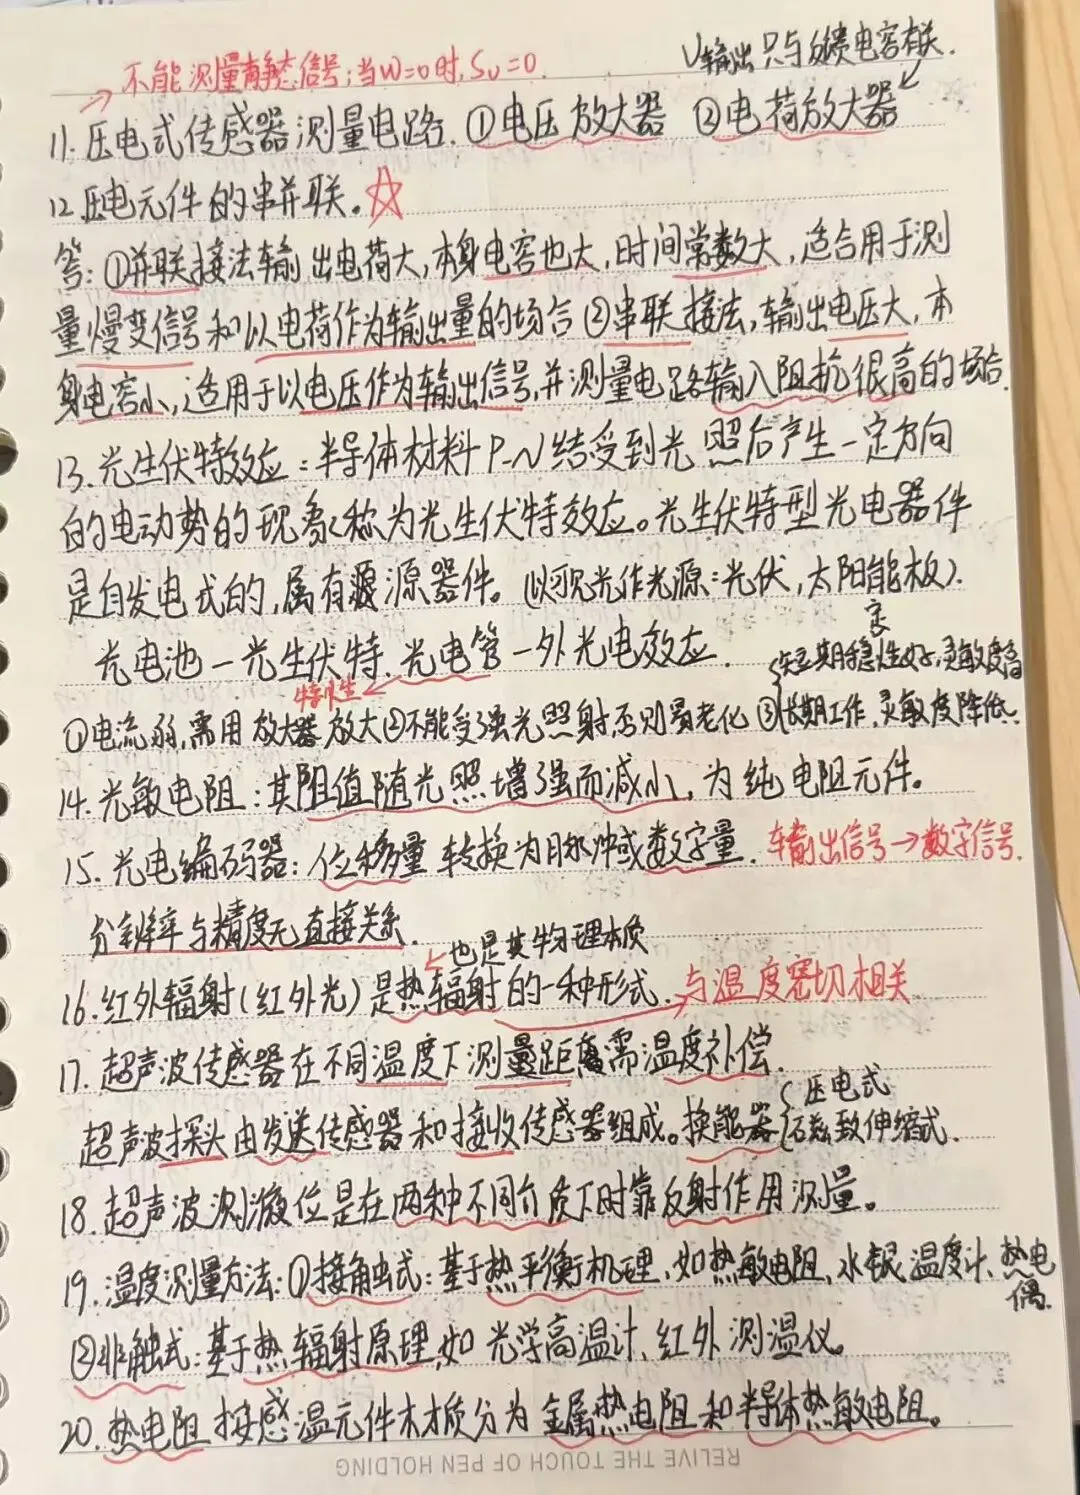 U输出只与反馈电容有关.
→不能测量静态信号;当W=0时,Su=0.
11.压电式传感器测量电路.①电压放大器 ②电荷放大器
12.压电元件的串并联。☆
答:①并联接法输出电荷大,本身电容也大,时间常数大,适合用于测
量慢变信号和以电荷作为输出量的场合②串联接法,输出电压大,本
身电容小,适用于以电压作为输出信号,并测量电路输入阻抗很高的场合.
13.光生伏特效应:半导体材料P-N结受到光照后产生一定方向
的电动势的现象称为光生伏特效应。光生伏特型光电器件
是自发电式的,属有源器件。(以可见光作光源:光伏,太阳能板).
光电池—光生伏特.光电管—外光电效应.
短期稳定性好,灵敏度高
特性
①电流弱,需用放大器放大②不能受强光照射否则易老化③长期工作,灵敏度降低.
14.光敏电阻:其阻值随光照增强而减小,为纯电阻元件。
15.光电编码器:位移量转换为脉冲或数字量.输出信号→数字信号.
分辨率与精度无直接关系.
也是其物理本质
16.红外辐射(红外光)是热辐射的一种形式.→与温度密切相关
17.超声波传感器在不同温度下测量距离需温度补偿.
压电式
超声波探头由发送传感器和接收传感器组成。换能器{磁致伸缩式.
18.超声波测液位是在两种不同介质下时靠反射作用测量。
19.温度测量方法:①接触式:基于热平衡机理,如热敏电阻,水银温度计、热电
偶.
②非触式:基于热辐射原理,如光学高温计、红外测温仪。
20.热电阻按感温元件材质分为金属热电阻和半导体热敏电阻。
RELIVE THE TOUCH OF PEN HOLDING